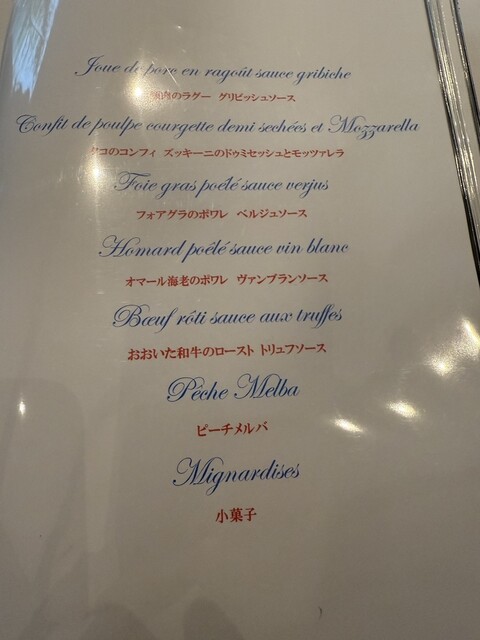 Joue de porc en ragoût sauce gribiche
頬肉のラグー グリビッシュソース
Confit de poulpe courgette demi sechées et Mozzarella
タコのコンフィ ズッキーニのドゥミセッシュとモッツァレラ
Foie gras poêlé sauce verjus
フォアグラのポワレ ベルジュソース
Homard poêlé sauce vin blanc
オマール海老のポワレ ヴァンブランソース
Bœuf rôti sauce aux truffes
おおいた和牛のロースト トリュフソース
Pêche Melba
ピーチメルバ
Mignardises
小菓子